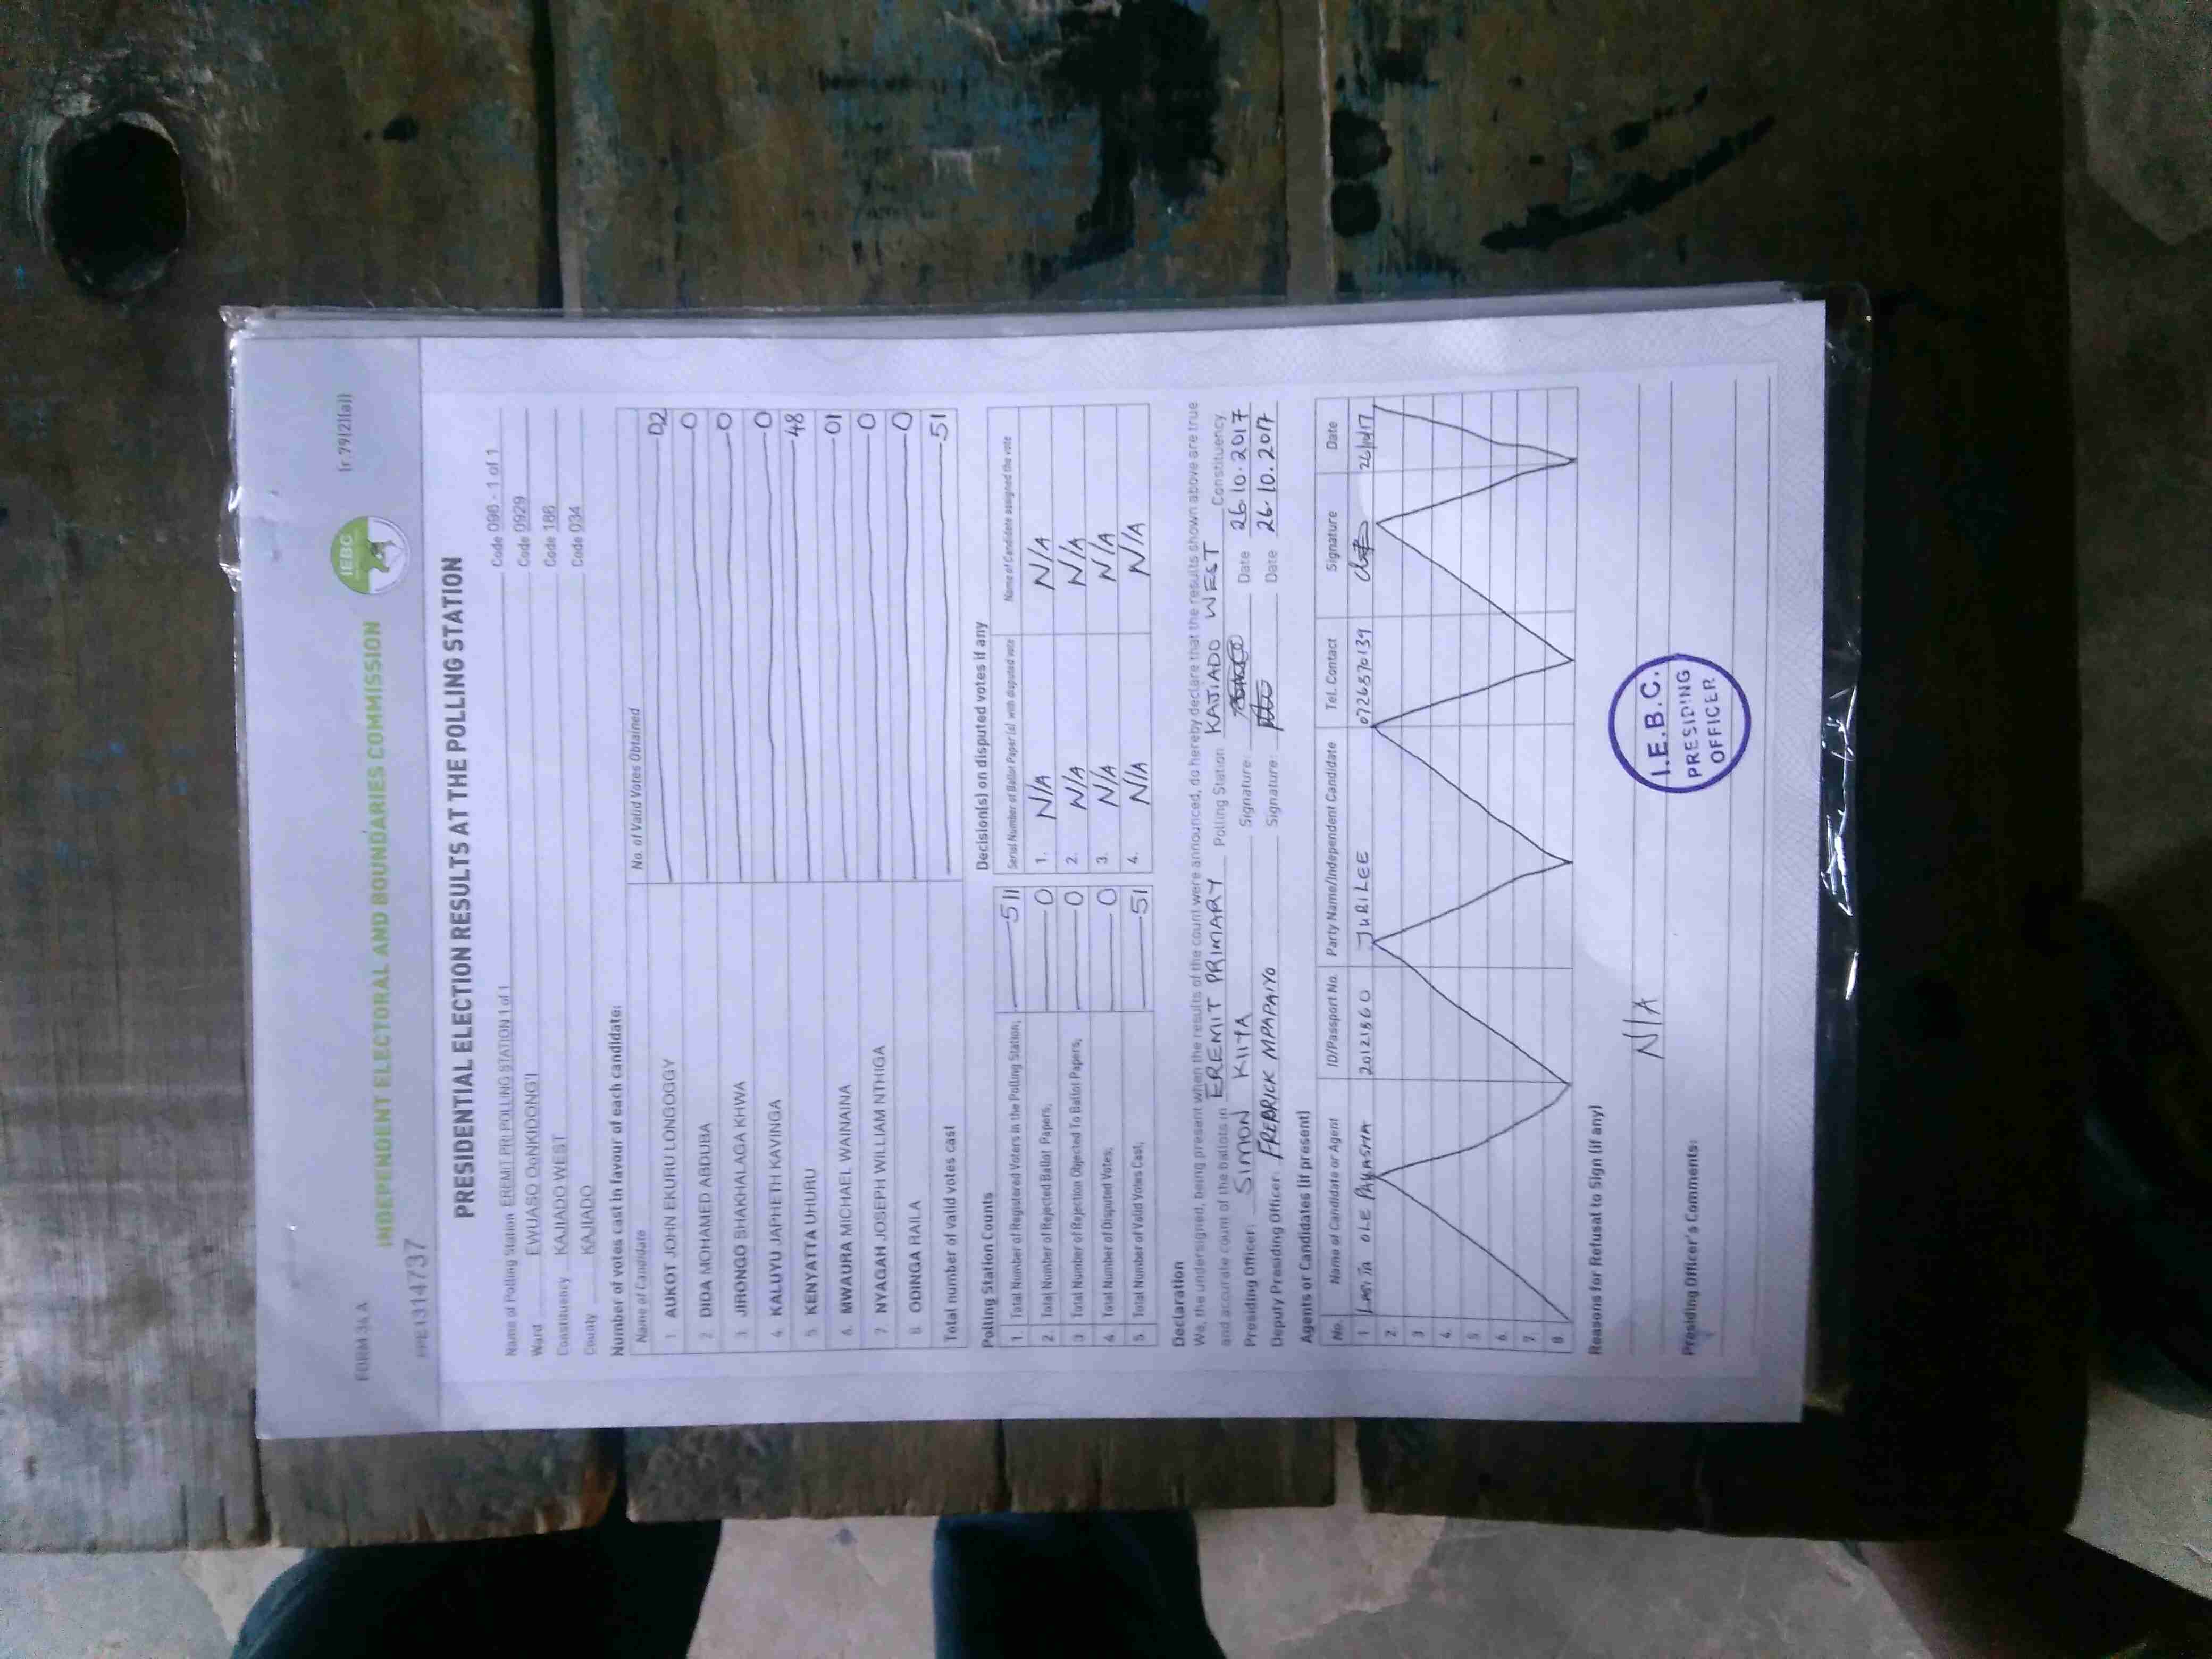 FORM 34A
INDEPENDENT ELECTORAL AND BOUNDARIES COMMISSION
IEBC
(r.79(2)(a))
PRESIDENTIAL ELECTION RESULTS AT THE POLLING STATION
Name of Polling Station EREMIT PRI POLLING STATION 1 of 1 Code 090 - 1 of 1
Ward EWUASO OoNKIDONG'I Code 0929
Constituency KAJIADO WEST Code 186
County KAJIADO Code 034
Number of votes cast in favour of each candidate:
Name of Candidate No. of Valid Votes Obtained
1 AUKOT JOHN EKURU LONGOGGY 02
2. DIDA MOHAMED ABDUBA 0
3. JIRONGO SHAKHALAGA KHWA 0
4. KALUYU JAPHETH KAVINGA 0
5 KENYATTA UHURU 48
6. MWAURA MICHAEL WAINAINA 01
7. NYAGAH JOSEPH WILLIAM NTHIGA 0
8 ODINGA RAILA 0
Total number of valid votes cast 51
Polling Station Counts
1. Total Number of Registered Voters in the Polling Station; 511
2 Total Number of Rejected Ballot Papers; 0
3 Total Number of Rejection Objected To Ballot Papers; 0
4 Total Number of Disputed Votes; 0
5 Total Number of Valid Votes Cast; 51
Decision(s) on disputed votes if any
Serial Number of Ballot Paper (s) with disputed vote Name of Candidate assigned the vote
1. N/A N/A
2. N/A N/A
3. N/A N/A
4. N/A N/A
Declaration
We, the undersigned, being present when the results of the count were announced, do hereby declare that the results shown above are true
and accurate count of the ballots in EREMIT PRIMARY Polling Station KAJIADO WEST Constituency.
Presiding Officer: SIMON Signature: Date 26.10.2017
Deputy Presiding Officer: FREDRICK MPAPAIYO Signature: Date 26.10.2017
Agents or Candidates (if present)
No. Name of Candidate or Agent ID/Passport No. Party Name/Independent Candidate Tel. Contact Signature Date
1 OLE JUBILEE 26/10/17
2.
3
4.
5.
6.
7.
8.
Reasons for Refusal to Sign (if any)
N/A
Presiding Officer's Comments:
I.E.B.C.
PRESIDING
OFFICER